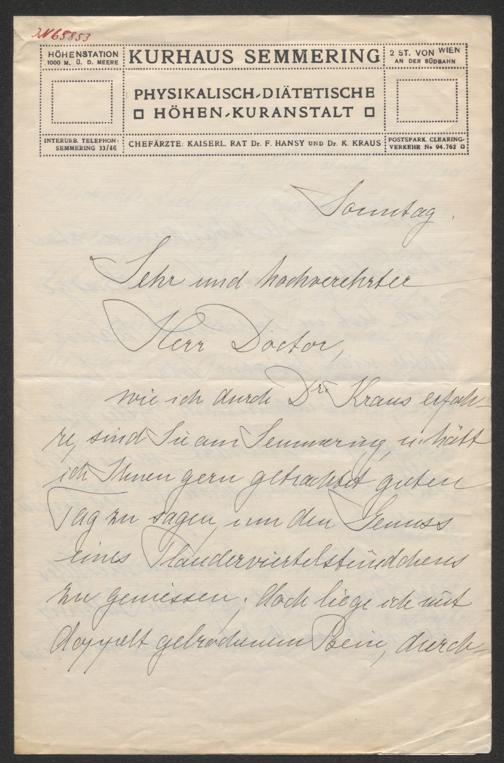 HÖHENSTATION
1000 M. Ü. D. MEERE
KURHAUS SEMMERING
2 ST. VON WIEN
AN DER SÜDBAHN
PHYSIKALISCH-DIÄTETISCHE
HÖHEN-KURANSTALT
INTERURB. TELEPHON:
SEMMERING 33/46
CHEFÄRZTE: KAISERL. RAT Dr. F. HANSY UND Dr. K. KRAUS
POSTSPARK. CLEARING-
VERKEHR No 94.762
Sonntag.
Sehr und hochverehrter
Herr Doctor,
wie ich durch Dr. Kraus erfah-
re, sind Sie am Semmering, u. hätt
ich Ihnen gern getrachtet guten
Tag zu sagen, um den Genuss
eines Plauderviertelstündchens
zu geniessen; doch liege ich mit
doppelt gebrochenem Bein, durch